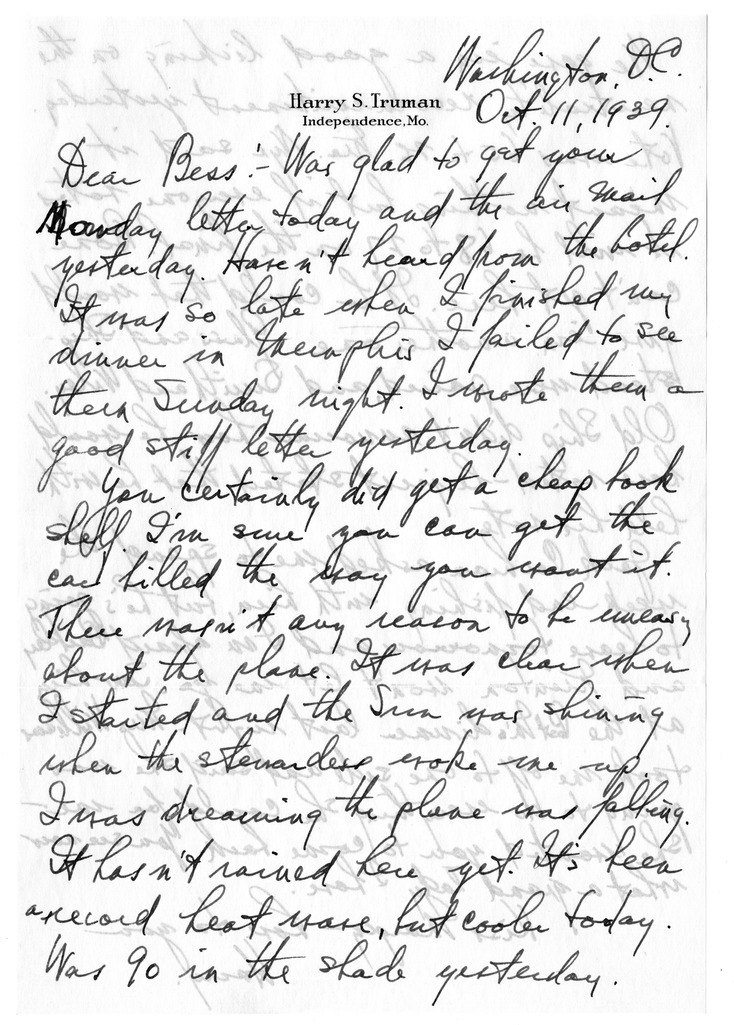 Washington, D.C.
Harry S. Truman
Independence, Mo.
Oct. 11, 1939.
Dear Bess:- Was glad to get your
Monday letter today and the air mail
yesterday. Haven't heard from the hotel.
It was so late when I finished my
dinner in Memphis I failed to see
them Sunday night. I wrote them a
good stiff letter yesterday.
You certainly did get a cheap book
shelf. I'm sure you can get the
car billed the way you want it.
There wasn't any reason to be uneasy
about the plane. It was clear when
I started and the Sun was shining
when the stewardess woke me up.
I was dreaming the plane was falling.
It hasn't rained here yet. It's been
a record heat wave, but cooler today.
Was 90 in the shade yesterday.